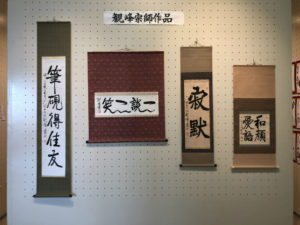 観峰宗師作品
筆硯得佳友
一談一笑
寂默
和顔
愛語